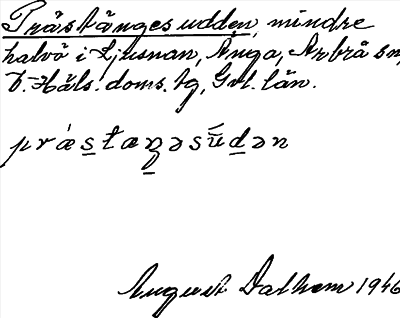 Prästängesudden, mindre
halvö i Ljusnan, Änga, Arbrå sn,
V. Häls. doms. tg, Gvl. län.
präst æŋəsudən
August Dalhem 1946